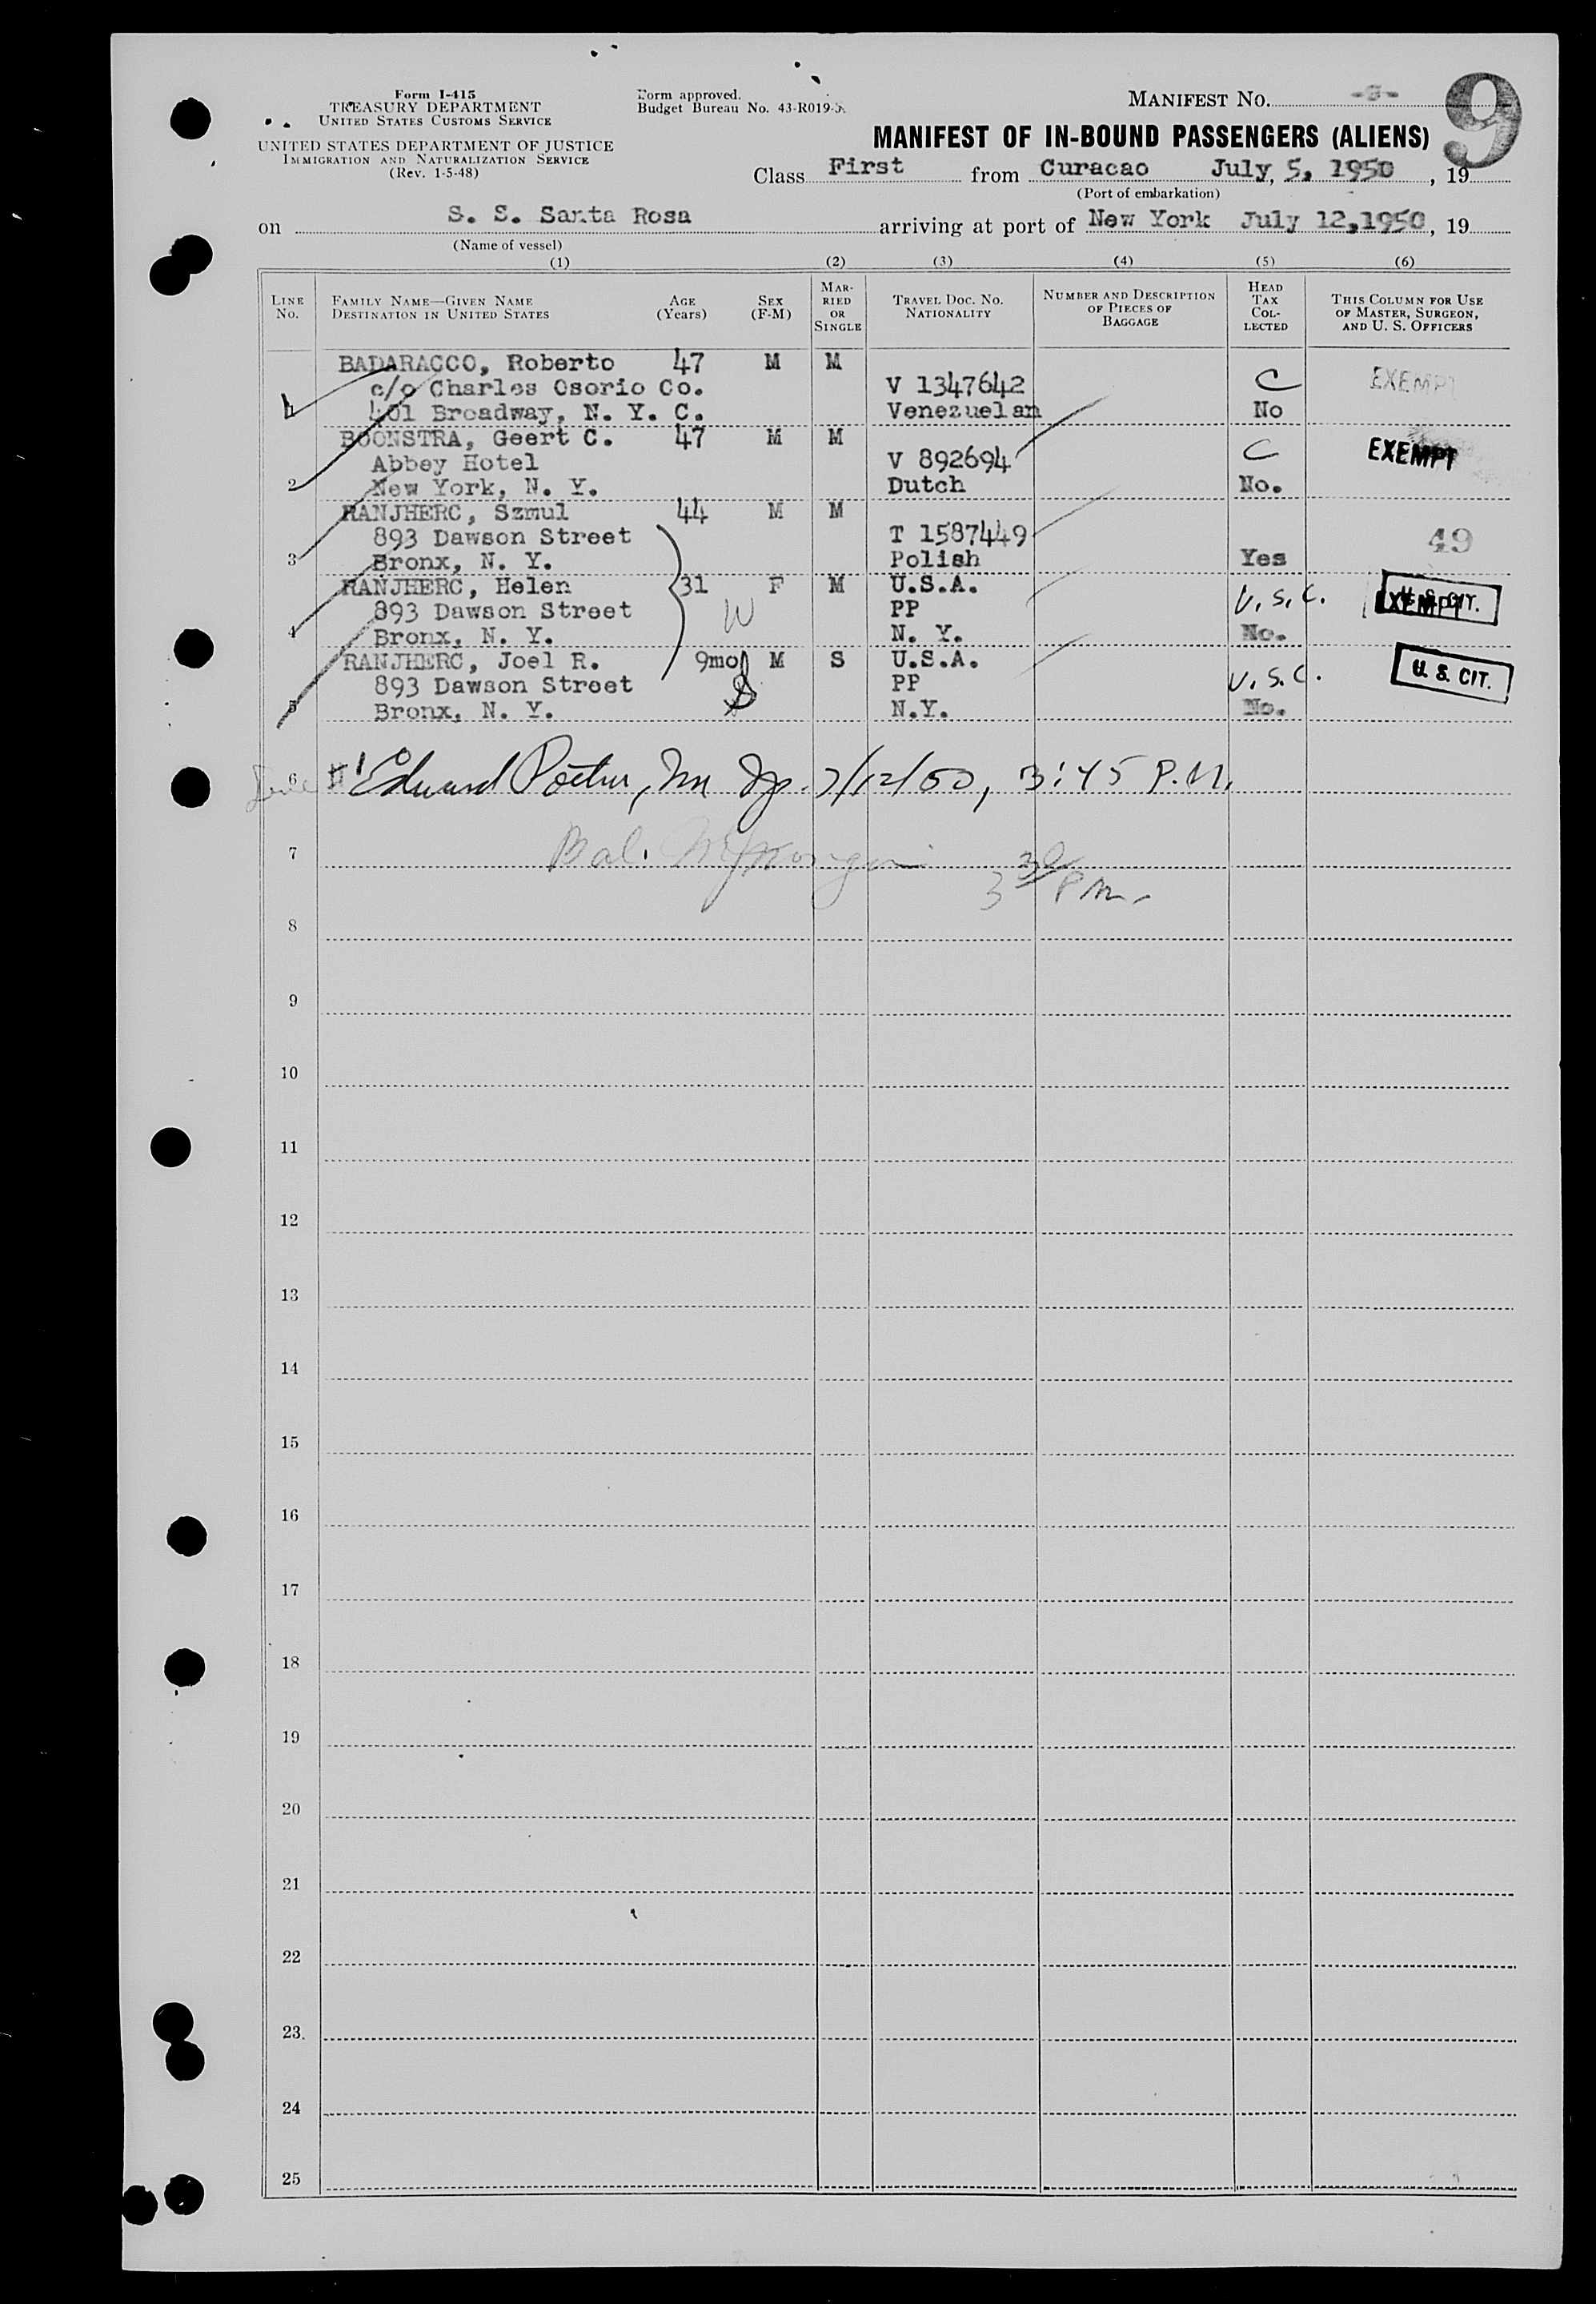 Form I-415
TREASURY DEPARTMENT
UNITED STATES CUSTOMS SERVICE
UNITED STATES DEPARTMENT OF JUSTICE
IMMIGRATION AND NATURALIZATION SERVICE
(Rev. 1-5-48)
Form approved.
Budget Bureau No. 43-R019-
MANIFEST NO.
9
MANIFEST OF IN-BOUND PASSENGERS (ALIENS)
Class First from Curacao July, 5, 1950, 19
(Port of embarkation)
on S. S. Santa Rosa arriving at port of New York July 12,1950, 19
(Name of vessel)
(1) (2) (3) (4) (5) (6)
LINE NO. FAMILY NAME—GIVEN NAME DESTINATION IN UNITED STATES AGE (Years) SEX (F-M) MARRIED OR SINGLE TRAVEL DOC. NO. NATIONALITY NUMBER AND DESCRIPTION OF PIECES OF BAGGAGE HEAD TAX COLLECTED THIS COLUMN FOR USE OF MASTER, SURGEON, AND U. S. OFFICERS
BADARACCO, Roberto 47 M M
c/o Charles Osorio Co. V 1347642 C EXEMPT
1 401 Broadway, N. Y. C. Venezuelan No
BOONSTRA, Geert C. 47 M M
Abbey Hotel V 892694 C EXEMPT
2 New York, N. Y. Dutch No.
RANJHERC, Szmul 44 M M
893 Dawson Street T 1587449 49
3 Bronx, N. Y. Polish Yes
RANJHERC, Helen 31 F M U.S.A.
893 Dawson Street W PP U.S.C. EXEMPT U. S. CIT.
4 Bronx, N. Y. N. Y. No.
RANJHERC, Joel R. 9mo M S U.S.A.
893 Dawson Street PP U.S.C. U. S. CIT.
5 Bronx, N. Y. N.Y. No.
6 #1 Edward 7/12/50, 3:45 P.M.
7 Bal. 3 30 P.M.
8
9
10
11
12
13
14
15
16
17
18
19
20
21
22
23
24
25